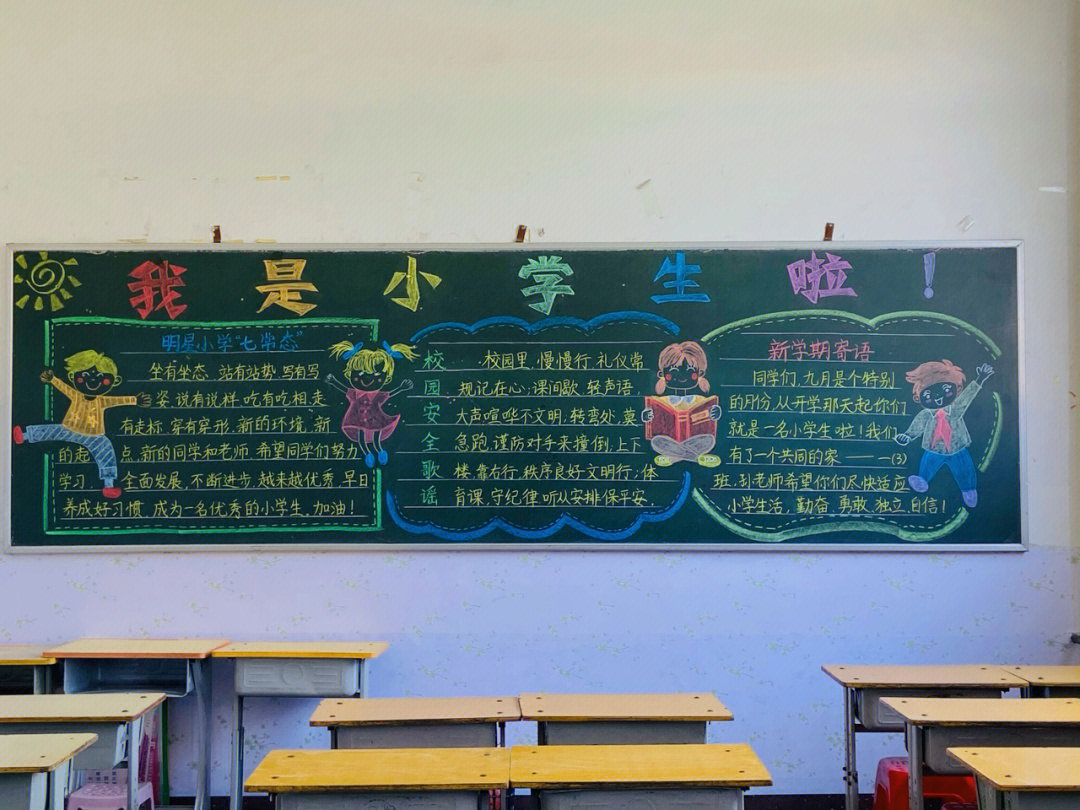 我是小学生啦！
明星小学“七常态”
坐有坐态、站有站势、写有写
姿、说有说样、吃有吃相、走
有走标、穿有穿形、新的环境、新
的起点、新的同学和老师、希望同学们努力
学习、全面发展、不断进步、越来越优秀、早日
养成好习惯、成为一名优秀的小学生、加油！
校园安全歌谣
校园里、慢慢行、礼仪常
规记在心；课间歇、轻声语
大声喧哗不文明；转弯处、莫
急跑、谨防对手来撞倒；上下
楼、靠右行、秩序良好文明行；体
育课、守纪律、听从安排保平安、
新学期寄语
同学们、九月是个特别
的月份、从开学那天起你们
就是一名小学生啦！我们
有了一个共同的家——一(3)
班、彭老师希望你们尽快适应
小学生活，勤奋、勇敢、独立、自信！